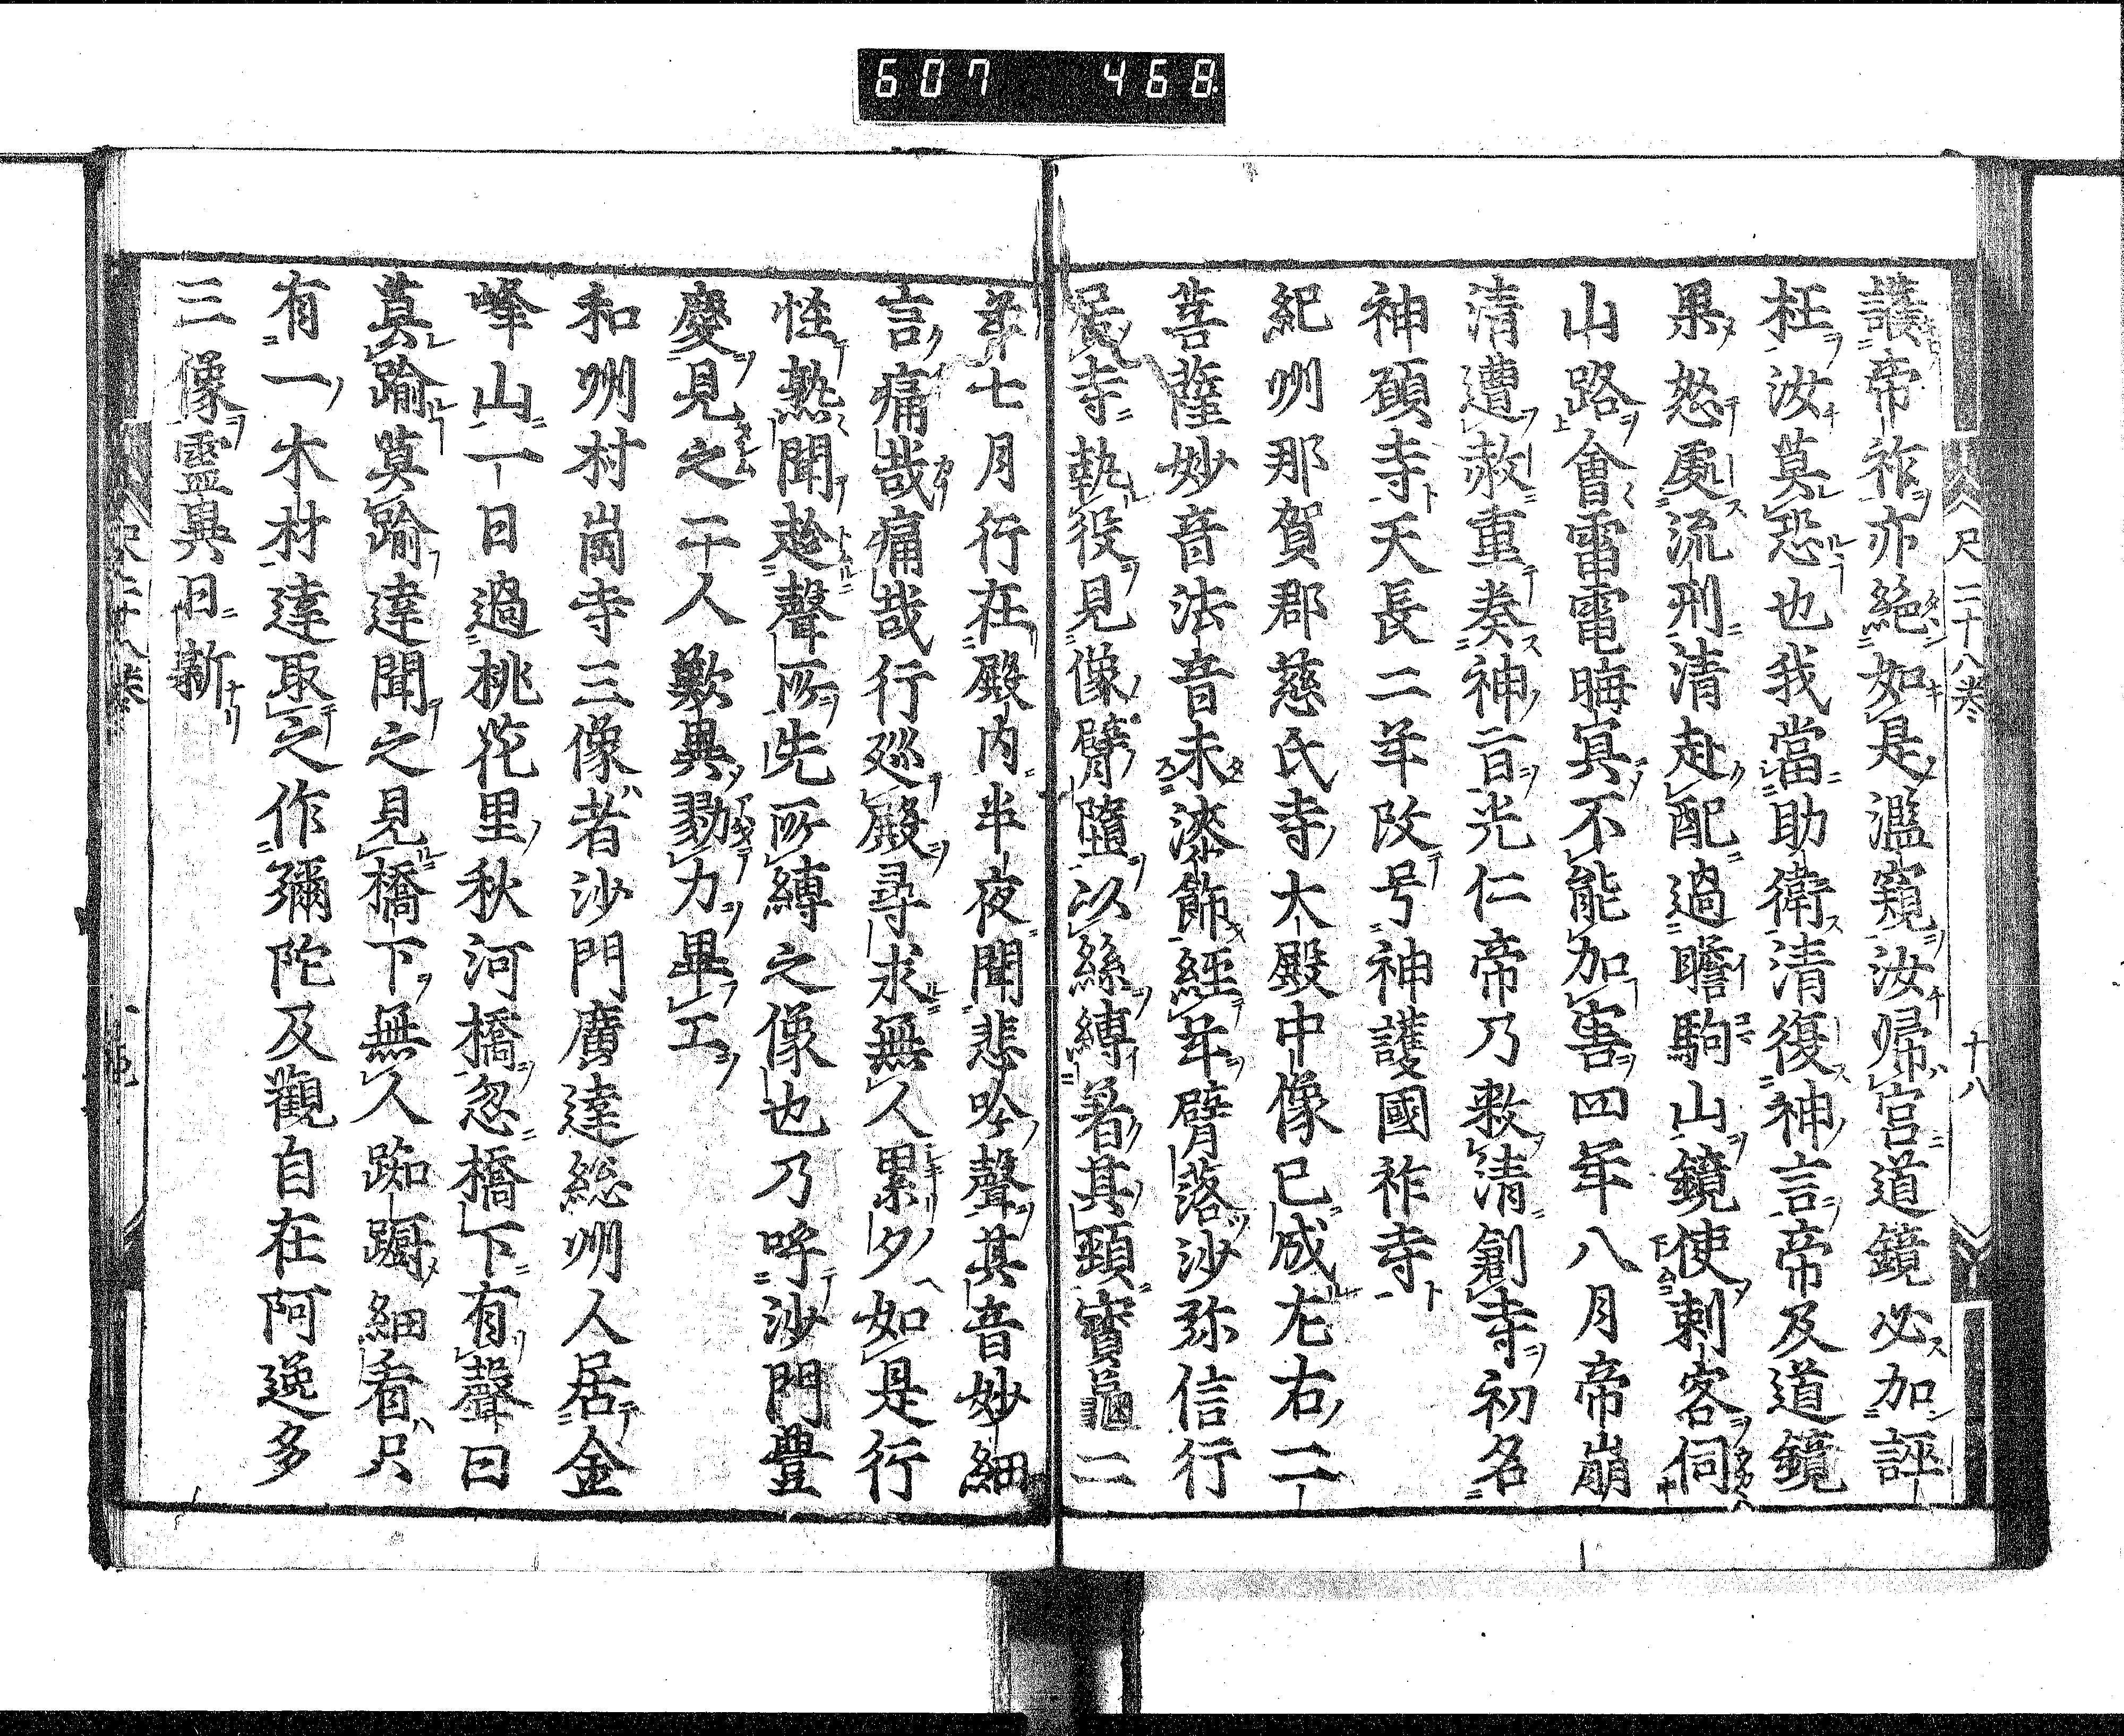 607 468.
尺二十八巻 十八
護帝祚亦絶如是濫窺汝帰宮道鏡必加誣
枉汝莫恐也我當助衛清復神言帝及道鏡
果怒處流刑清赴配過瞻駒山鏡使刺客伺
山路會雷電晦冥不能加害四年八月帝崩
清遭赦重奏神旨光仁帝乃敕清創寺初名
神願寺天長二年改号神護國祚寺
紀州那賀郡慈氏寺大殿中像已成左右二
菩薩妙音法音未漆飾經年臂落沙弥信行
居寺執役見像臂墮以絲縛著其頸寶龜二
年七月行在殿内半夜聞悲吟聲其音妙細
言痛哉痛哉行廵殿尋求無人累夕如是行
性熟聞趁聲所先所縛之像也乃呼沙門豊
慶見之二人歎異勠力畢工
和州村崗寺三像者沙門廣達総州人居金
峰山一日過桃花里秋河橋忽橋下有聲曰
莫踰莫踰達聞之見橋下無人踟躕細看只
有一木材達取之作彌陀及觀自在阿逸多
三像靈異日新
尺二十八巻